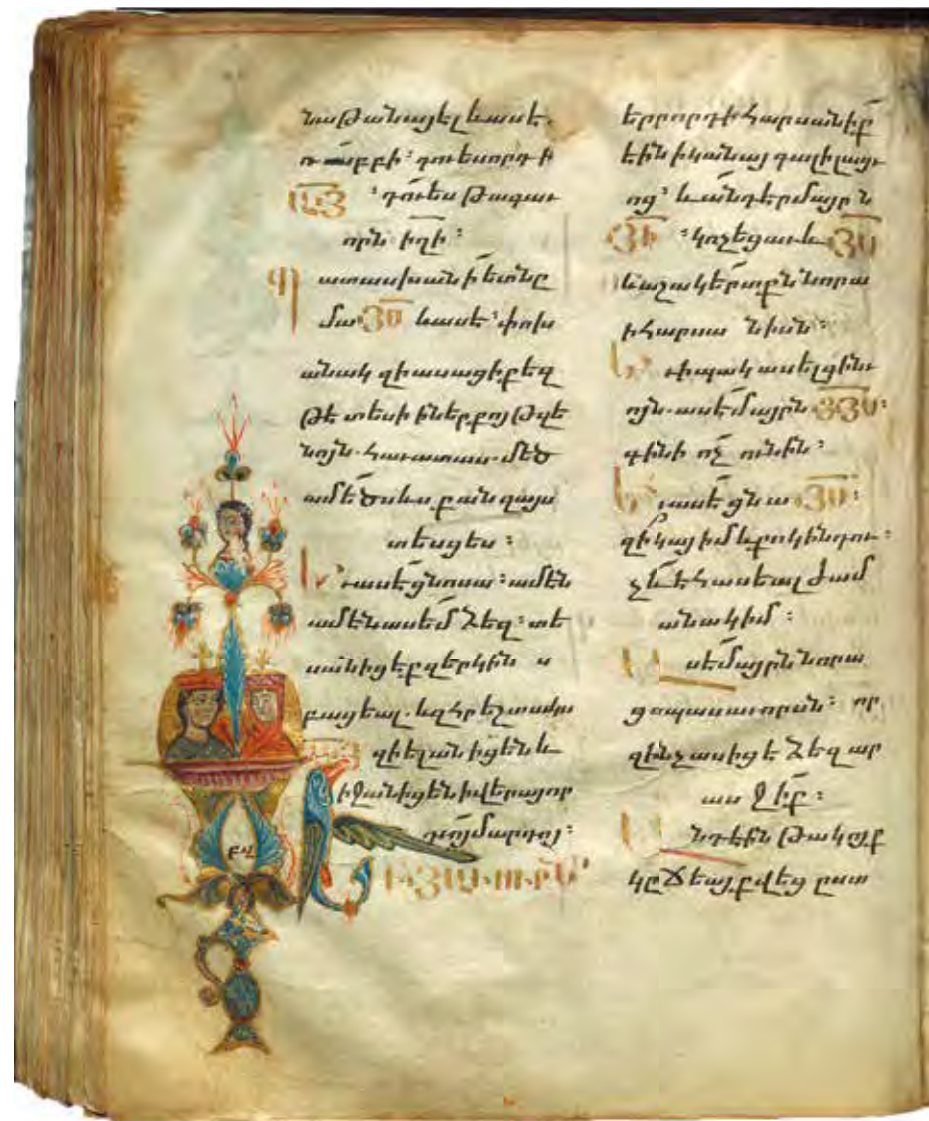 նաթանայել եւ ասէ.
ռաբբի ։ դու ես որդի
ԱՅ ։ դու ես թագաւ
որն իղի ։
Պատասխանի ետ նը
մա ՅՍ եւ ասէ ։ փոխ
անակ զի ասացի քեզ
թէ տեսի ի ներքոյ թզե
նոյն. հաւատաս. մեծ
ամեծս եւս քան զայս
տեսցես ։
Եւ ասէ ցնոսա ։ ամէն
ամէն ասեմ ձեզ ։ տե
սանիցէք զերկինս
բացեալ. եւ զհրեշտակս
ԱՅ զի ելանիցեն եւ
իջանիցեն ի վերայ որ
դւոյ մարդոյ ։
բկ
երրորդի հարսանիք
էին ի կանայ գալիլացւ
ոց ։ եւ անդ էր մայրն
ՅԻ ։ կոչեցաւ եւ ՅՍ
եւ աշակերտքն նորա
ի հարսանիսն ։
Եւ ի պակասել գինւ
ոյն. ասէ մայրն ցՅՍ ։
գինի ոչ ունին ։
Եւ ասէ ցնա ՅՍ ։
զի կայ իմ եւ քո կին դու ։
չեւ է հասեալ ժամ
անակ իմ ։
Ասէ մայրն նորա
ցսպասաւորսն ։ որ
զինչ ասիցէ ձեզ ար
ասջիք ։
Անդ էին թակոյք
կըճեայք վեց ըստ